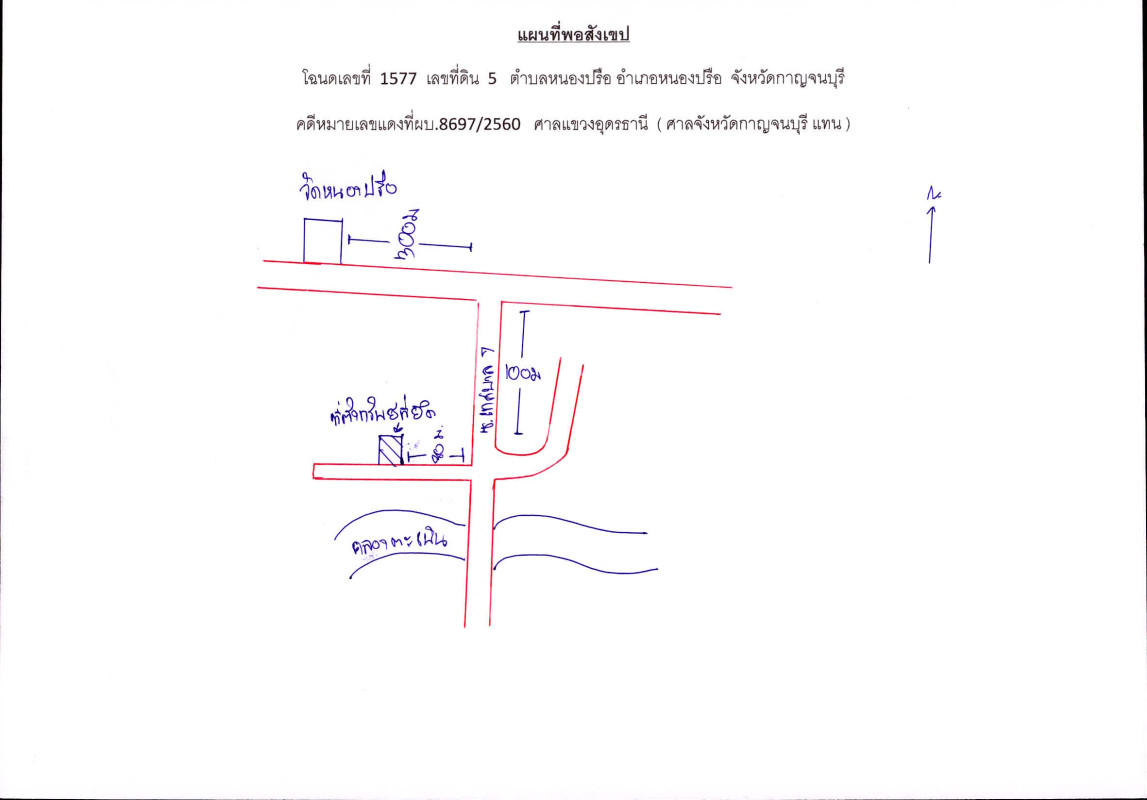 แผนที่พอสังเขป
โฉนดเลขที่ 1577 เลขที่ดิน 5 ตำบลหนองปรือ อำเภอหนองปรือ จังหวัดกาญจนบุรี
คดีหมายเลขแดงที่ผบ.8697/2560 ศาลแขวงอุดรธานี ( ศาลจังหวัดกาญจนบุรี แทน )
วัดหนองปรือ
N
300ม
ซ.เทศบาล 7
100ม
ที่ตั้งทรัพย์ที่ยึด
80ม
คลองตะเพิน